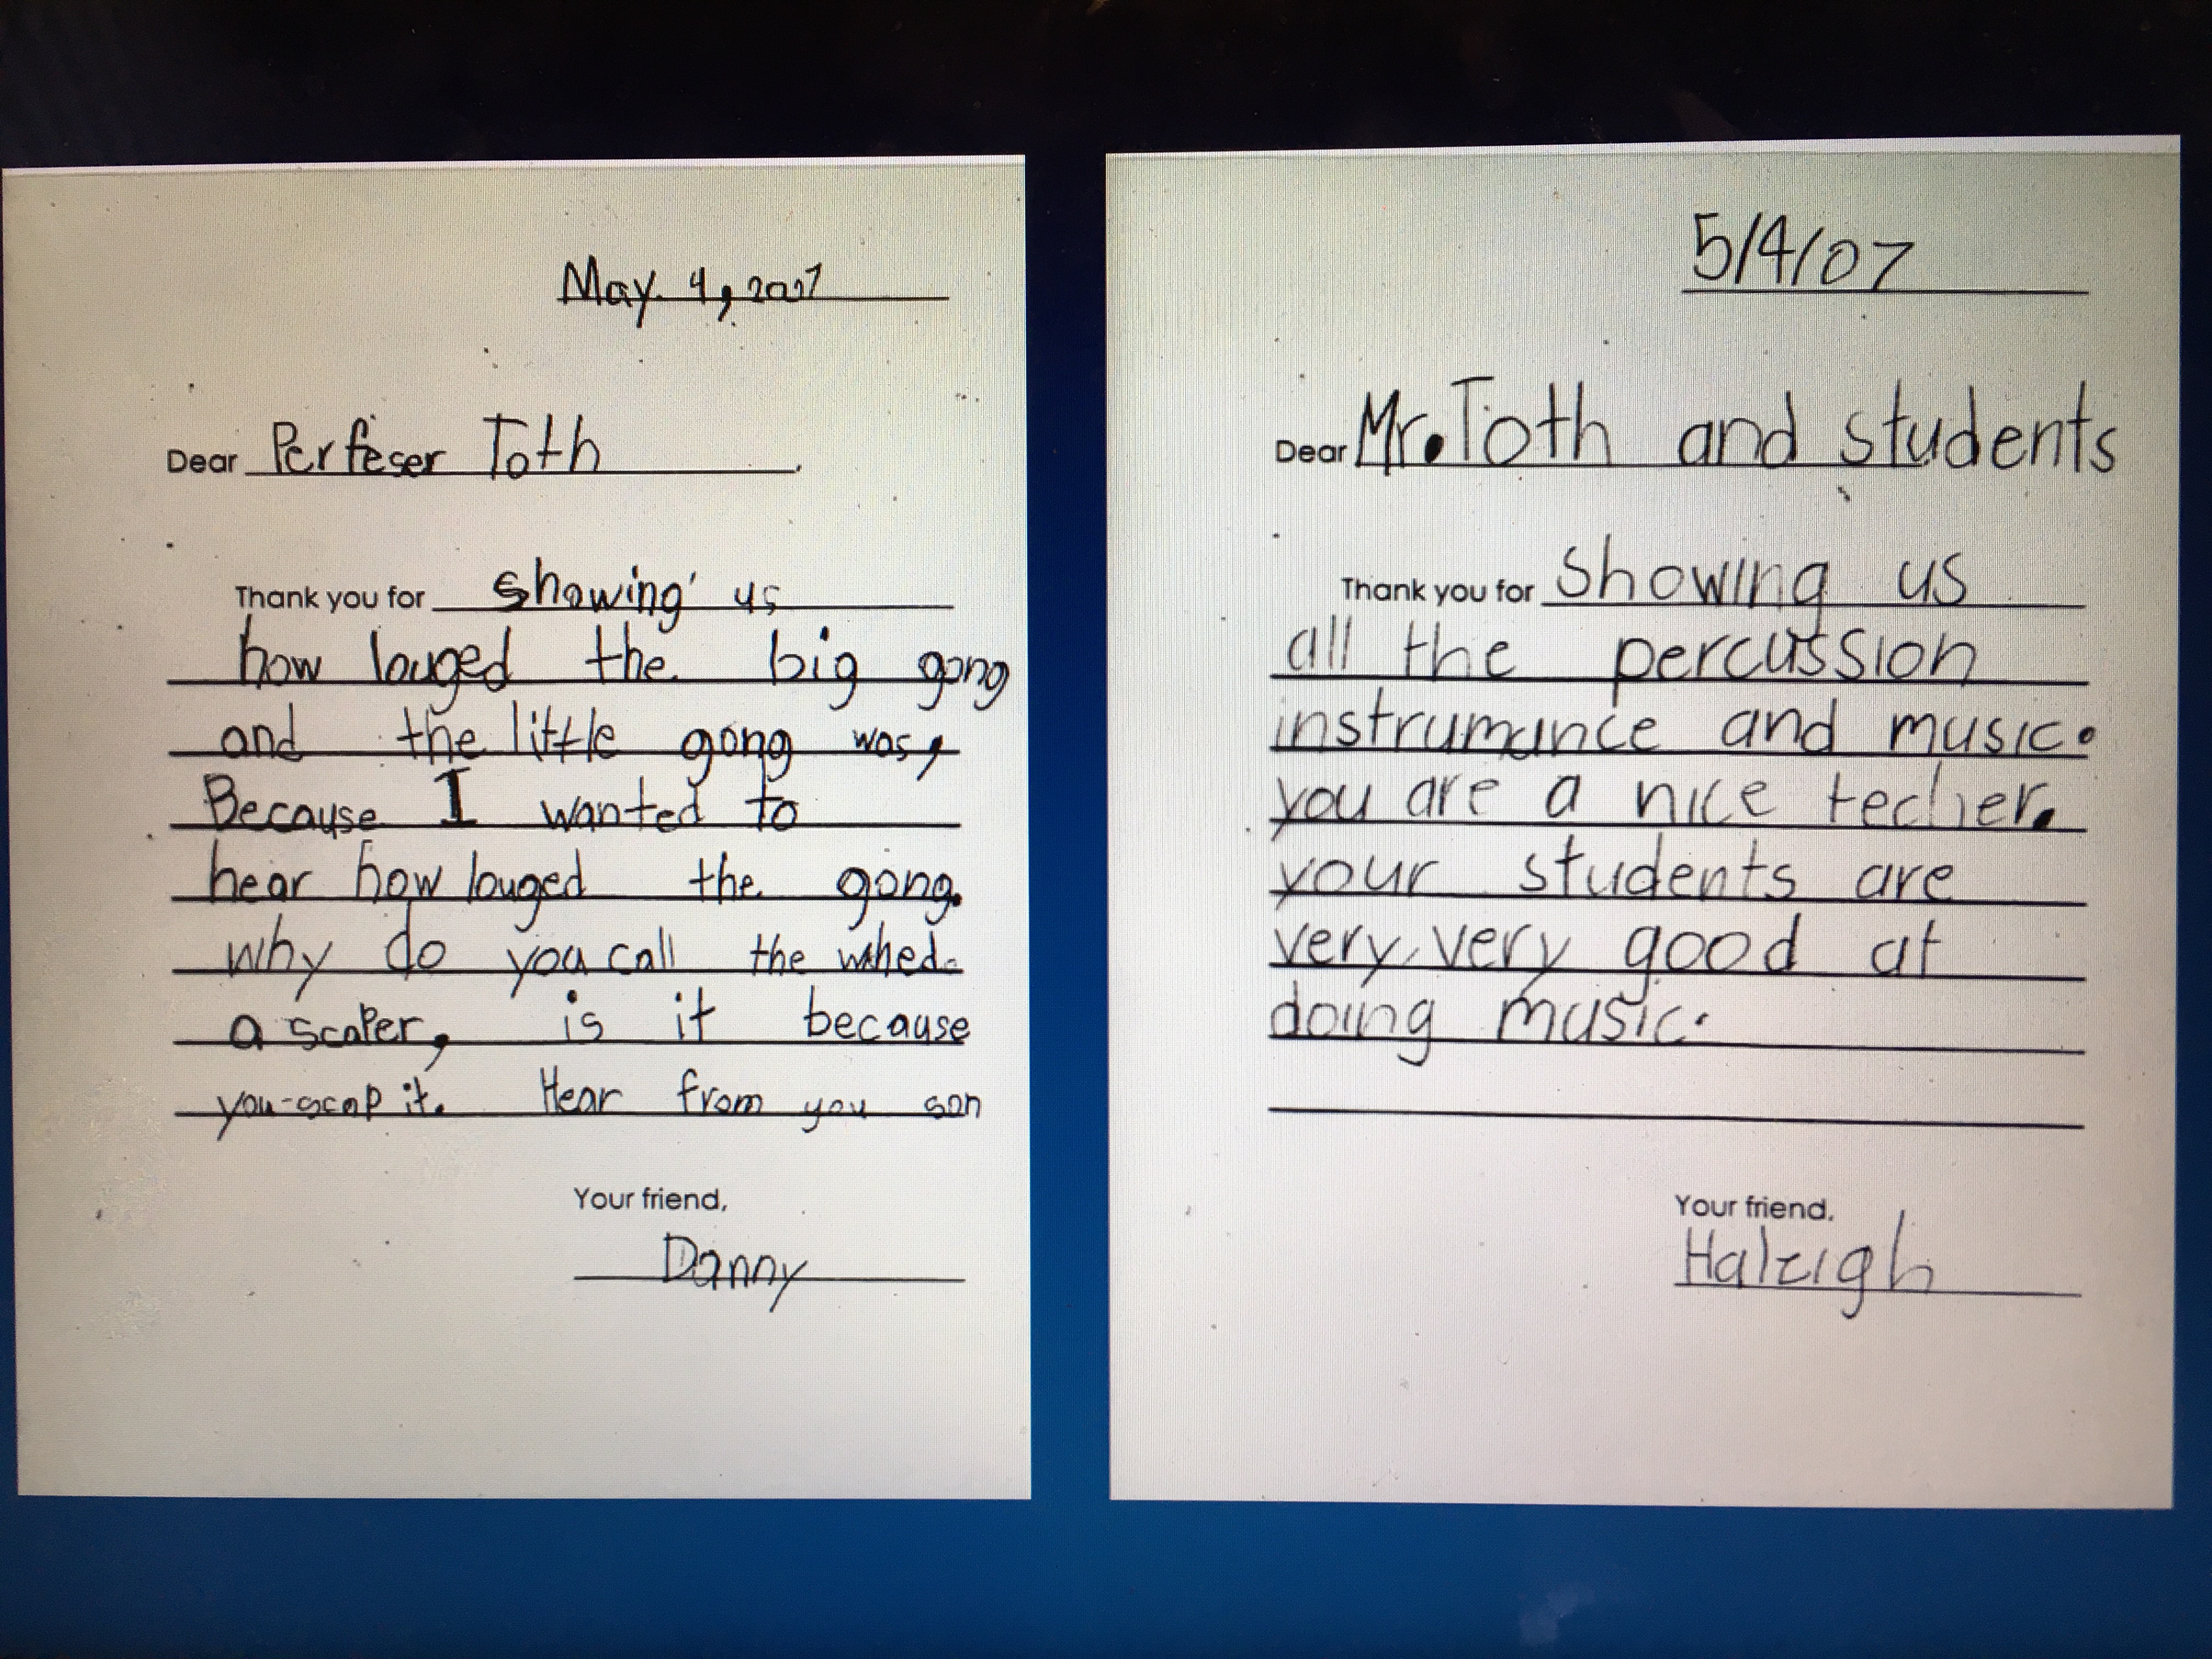 May. 4, 2007
Dear Perfeser Toth
Thank you for showing us
how louged the big gong
and the little gong was,
Because I wanted to
hear how louged the gong.
why do you call the whed.
a scaper, is it because
you scap it. Hear from you son
Your friend,
Danny
5/4/07
Dear Mr. Toth and students
Thank you for showing us
all the percussion
instrumance and music.
you are a nice techer.
your students are
very, very good at
doing music.
Your friend,
Haleigh